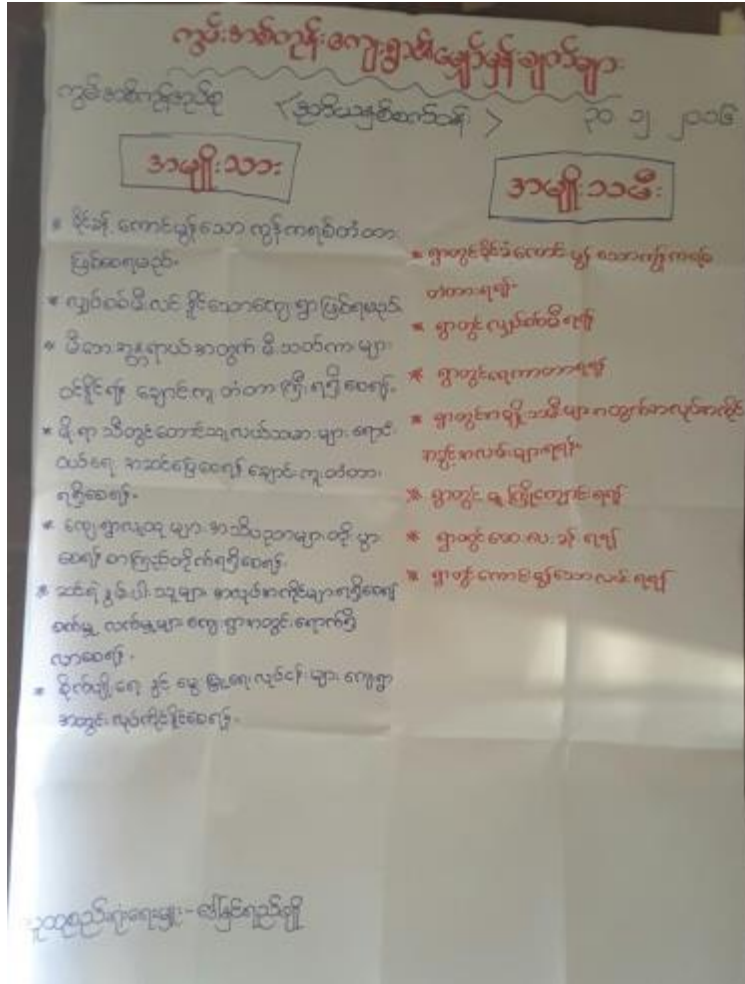 ကွမ်းအစ်ကုန်းကျေးရွာ၏မျှော်မှန်းချက်များ
ကွမ်းအစ်ကုန်းအုပ်စု <ဒုတိယနှစ်စက်ဝန်း> ၃၀ ၁၂ ၂၀၁၆
အမျိုးသား
* ခိုင်ခန့် ကောင်းမွန်သော ကွန်ကရစ်တံတား
ဖြစ်စေရမည်။
* လျှပ်စစ်မီးလင်းနိုင်သောကျေးရွာဖြစ်ရမည်
* မီးဘေးအန္တရာယ်အတွက် မီးသတ်ကားများ
ဝင်နိုင်ရန် ချောင်းကူးတံတားကြီးရရှိစေရန်။
* မိုးရာသီတွင်တောင်သူလယ်သမားများရောင်း
ဝယ်ရေး အဆင်ပြေစေရန် ချောင်းကူးတံတား
ရရှိစေရန်။
* ကျေးရွာလူထုများ အသိပညာများတိုးပွား
စေရန် စာကြည့်တိုက်ရရှိစေရန်။
* ဆင်းရဲနွမ်းပါးသူများ အလုပ်အကိုင်များရရှိစေရန်
စက်မှု့ လက်မှု့များ ကျေးရွာအတွင်းရောက်ရှိ
လာစေရန်။
* စိုက်ပျိုးရေး နှင့် မွေးမြူရေးလုပ်ငန်းများ ကျေးရွာ
အတွင်းလုပ်ကိုင်နိုင်စေရန်။
အမျိုးသမီး
* ရွာတွင်ခိုင်ခံ့ကောင်းမွန်သောကွန်ကရစ်
တံတားရရန်။
* ရွာတွင်လျှပ်စစ်မီးရရန်
* ရွာတွင်ရေကာတာရရန်
* ရွာတွင်အမျိုးသမီးများအတွက်အလုပ်အကိုင်
အခွင့်အလမ်းများရရန်။
* ရွာတွင် မူကြိုကျောင်းရရန်
* ရွာတွင်ဆေးပေးခန်းရရန်
* ရွာတွင်ကောင်းမွန်သောလမ်းရရန်
လူထုစည်းရုံးရေးမှူး - ဒေါ်မြင့်ရည်ချို